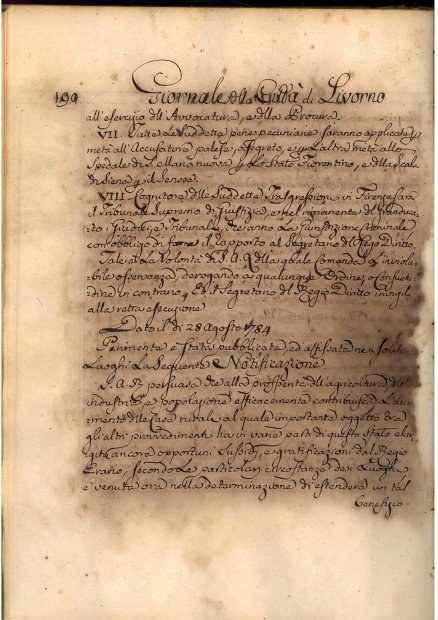 190 Giornale della Città di Livorno
all'esercizio dell'Avvocatura, e della Procura.
VII. Tutte le Suddette pene pecuniarie saranno applicate p
metà all'Accusatore palese, o segreto, e p l'altra metà allo
Spedale di 
di Siena p il Senese.
VIII. Cognitore delle Suddette Trasgressioni in Firenze sarà
il Tribunale Supremo di Giustizia, e nel rimanente del Granduca
to i Giudici, e Tribunali, che anno la Giurisdizione Criminale
con obbligo di farne il rapporto al Segretario del Regio Diritto.
Tale è la Volontà di S. A. R. la quale Comanda inviola
bile osservanza, derogando a qualunque Ordine, o Consuetu
dine in contrario, e il Segretario del Regio Diritto invigili
alla retta esecuzione
Dato il dì 28 Agosto 1784
Parimente è stata pubblicata, ed affissata nei soliti
Luoghi la Seguente Notificazione
S. A. R. persuaso che alla prosperità dell'agricoltura, dell'
industria, e popolazione efficacemente contribuisca l'au
mento delle Case rurali, al quale importante oggetto tra
gli altri provvedimenti ha in varie parti di questo Stato 
ancora opportuni Sussidj, e gratificazioni dal Regio
Erario, secondo le particolari circostanze dei Luoghi
è venuta ora nella determinazione di estendere un tal
benefizio